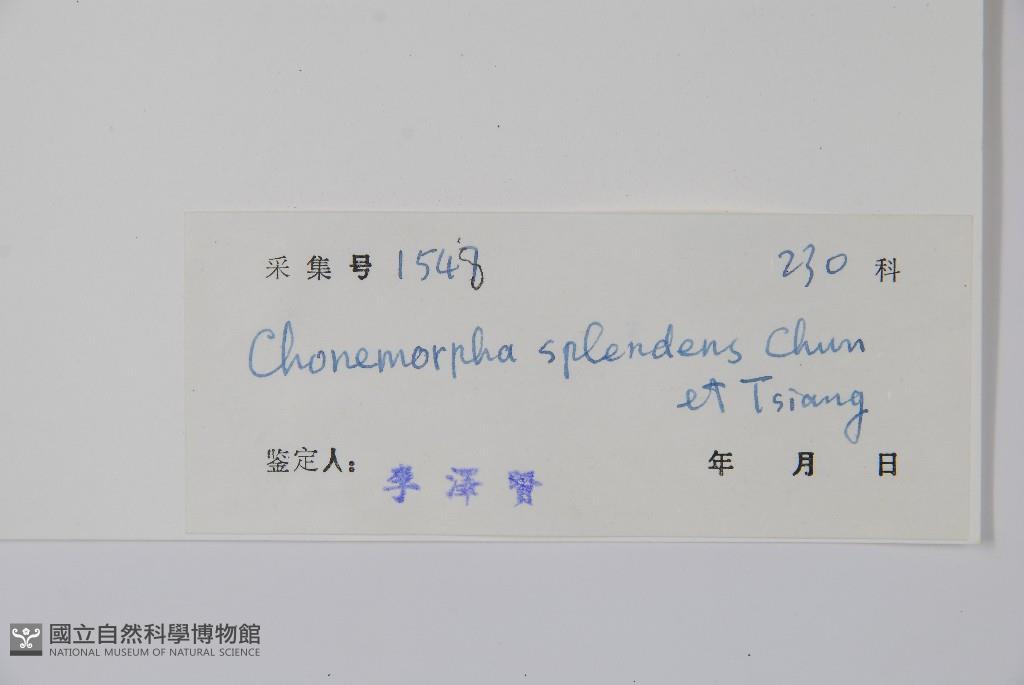 采集号 1548 230 科
Chonemorpha splendens Chun
et Tsiang
鉴定人: 李澤賢 年 月 日
國立自然科學博物館
NATIONAL MUSEUM OF NATURAL SCIENCE